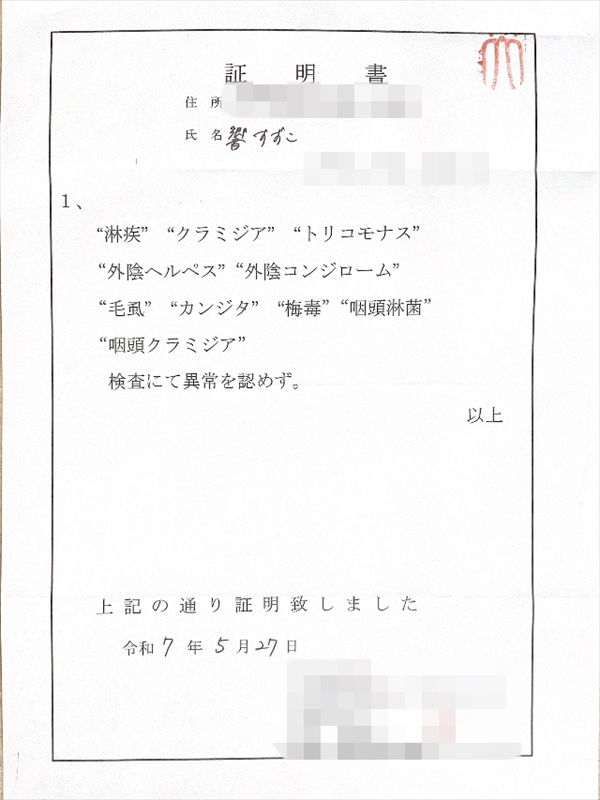 証明書
住所
氏名 響すずこ
1、
“淋疾” “クラミジア” “トリコモナス”
“外陰ヘルペス” “外陰コンジローム”
“毛虱” “カンジタ” “梅毒” “咽頭淋菌”
“咽頭クラミジア”
検査にて異常を認めず。
以上
上記の通り証明致しました
令和7年5月27日